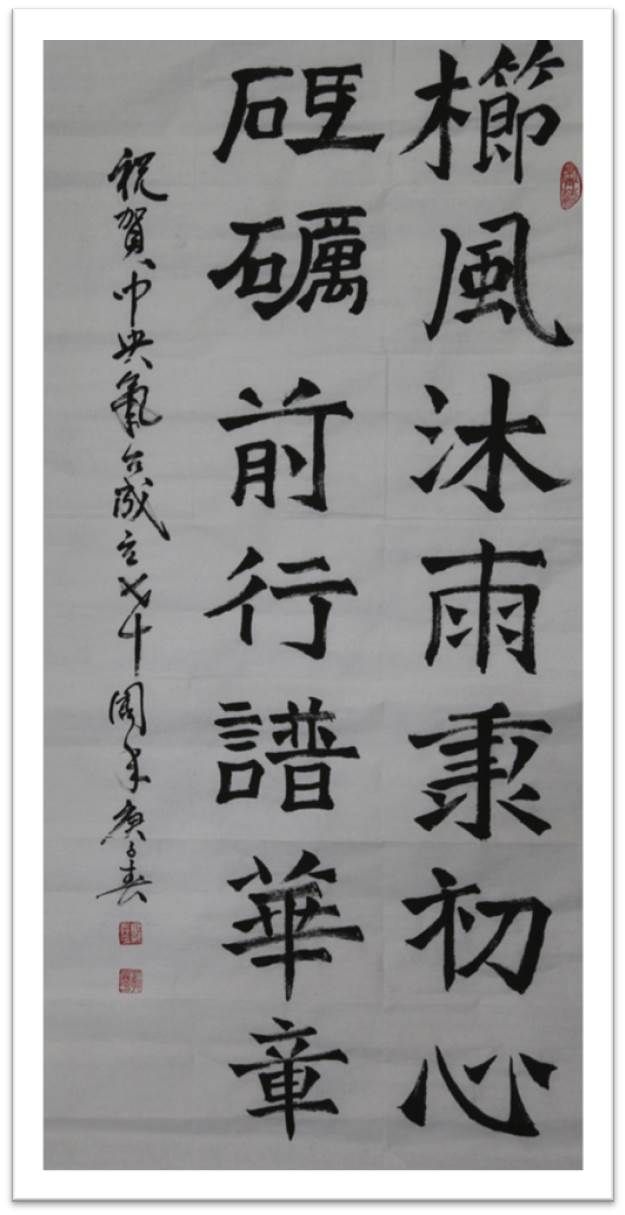 櫛風沐雨秉初心
砥礪前行譜華章
祝賀中央氣台成立七十周年庚子春